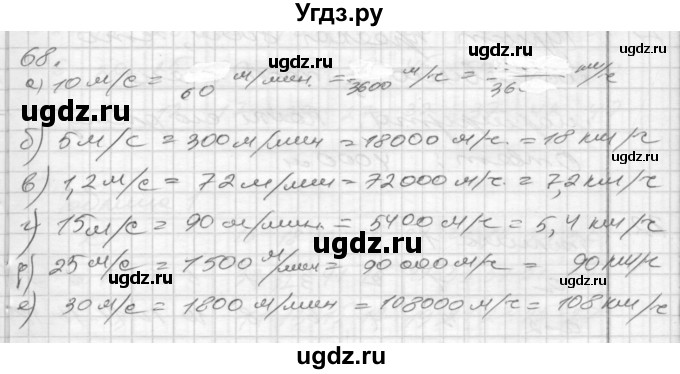 Угдз.ру
68.
а) 10 м/с = 60 м/мин. = 3600 м/ч = 36 км/ч
б) 5 м/с = 300 м/мин = 18000 м/ч. = 18 км/ч
в) 1,2 м/с = 72 м/мин = 72000 м/ч. = 7,2 км/ч
г) 15 м/с = 90 м/мин. = 5400 м/ч = 5,4 км/ч
д) 25 м/с = 1500 м/мин = 90000 м/ч = 90 км/ч
е) 30 м/с = 1800 м/мин = 108000 м/ч = 108 км/ч
ugdz.ru
ugdz.ru
ugdz.ru
ugdz.ru
ugdz.ru
ugdz.ru
ugdz.ru
ugdz.ru